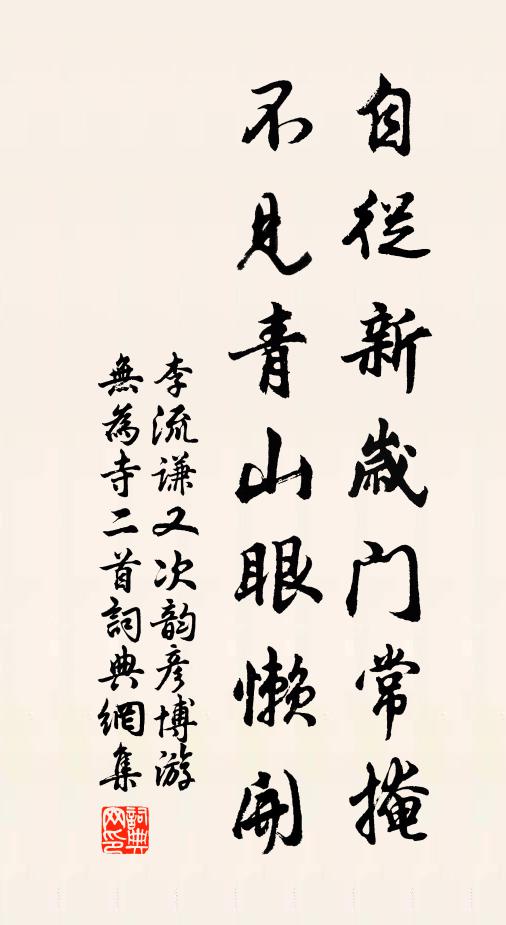 自從新歲门常掩
不見青山眼懒開
李流謙又次韵彦博游
無為寺二首詞典網集
詞典
网印